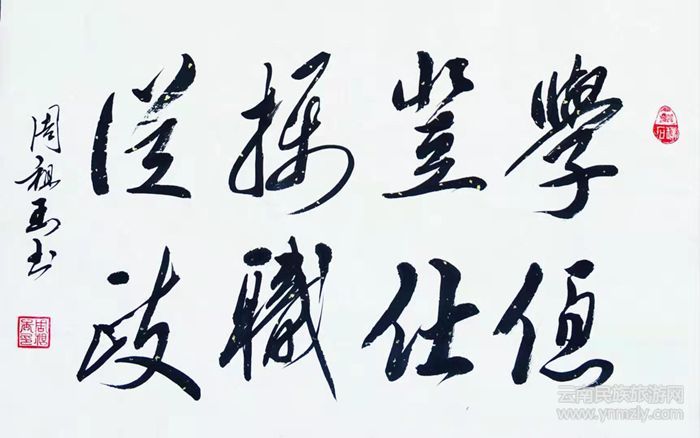 學優
登仕
攝職
從政
周祖玉书
云南民族旅游网
www.ynmzly.com